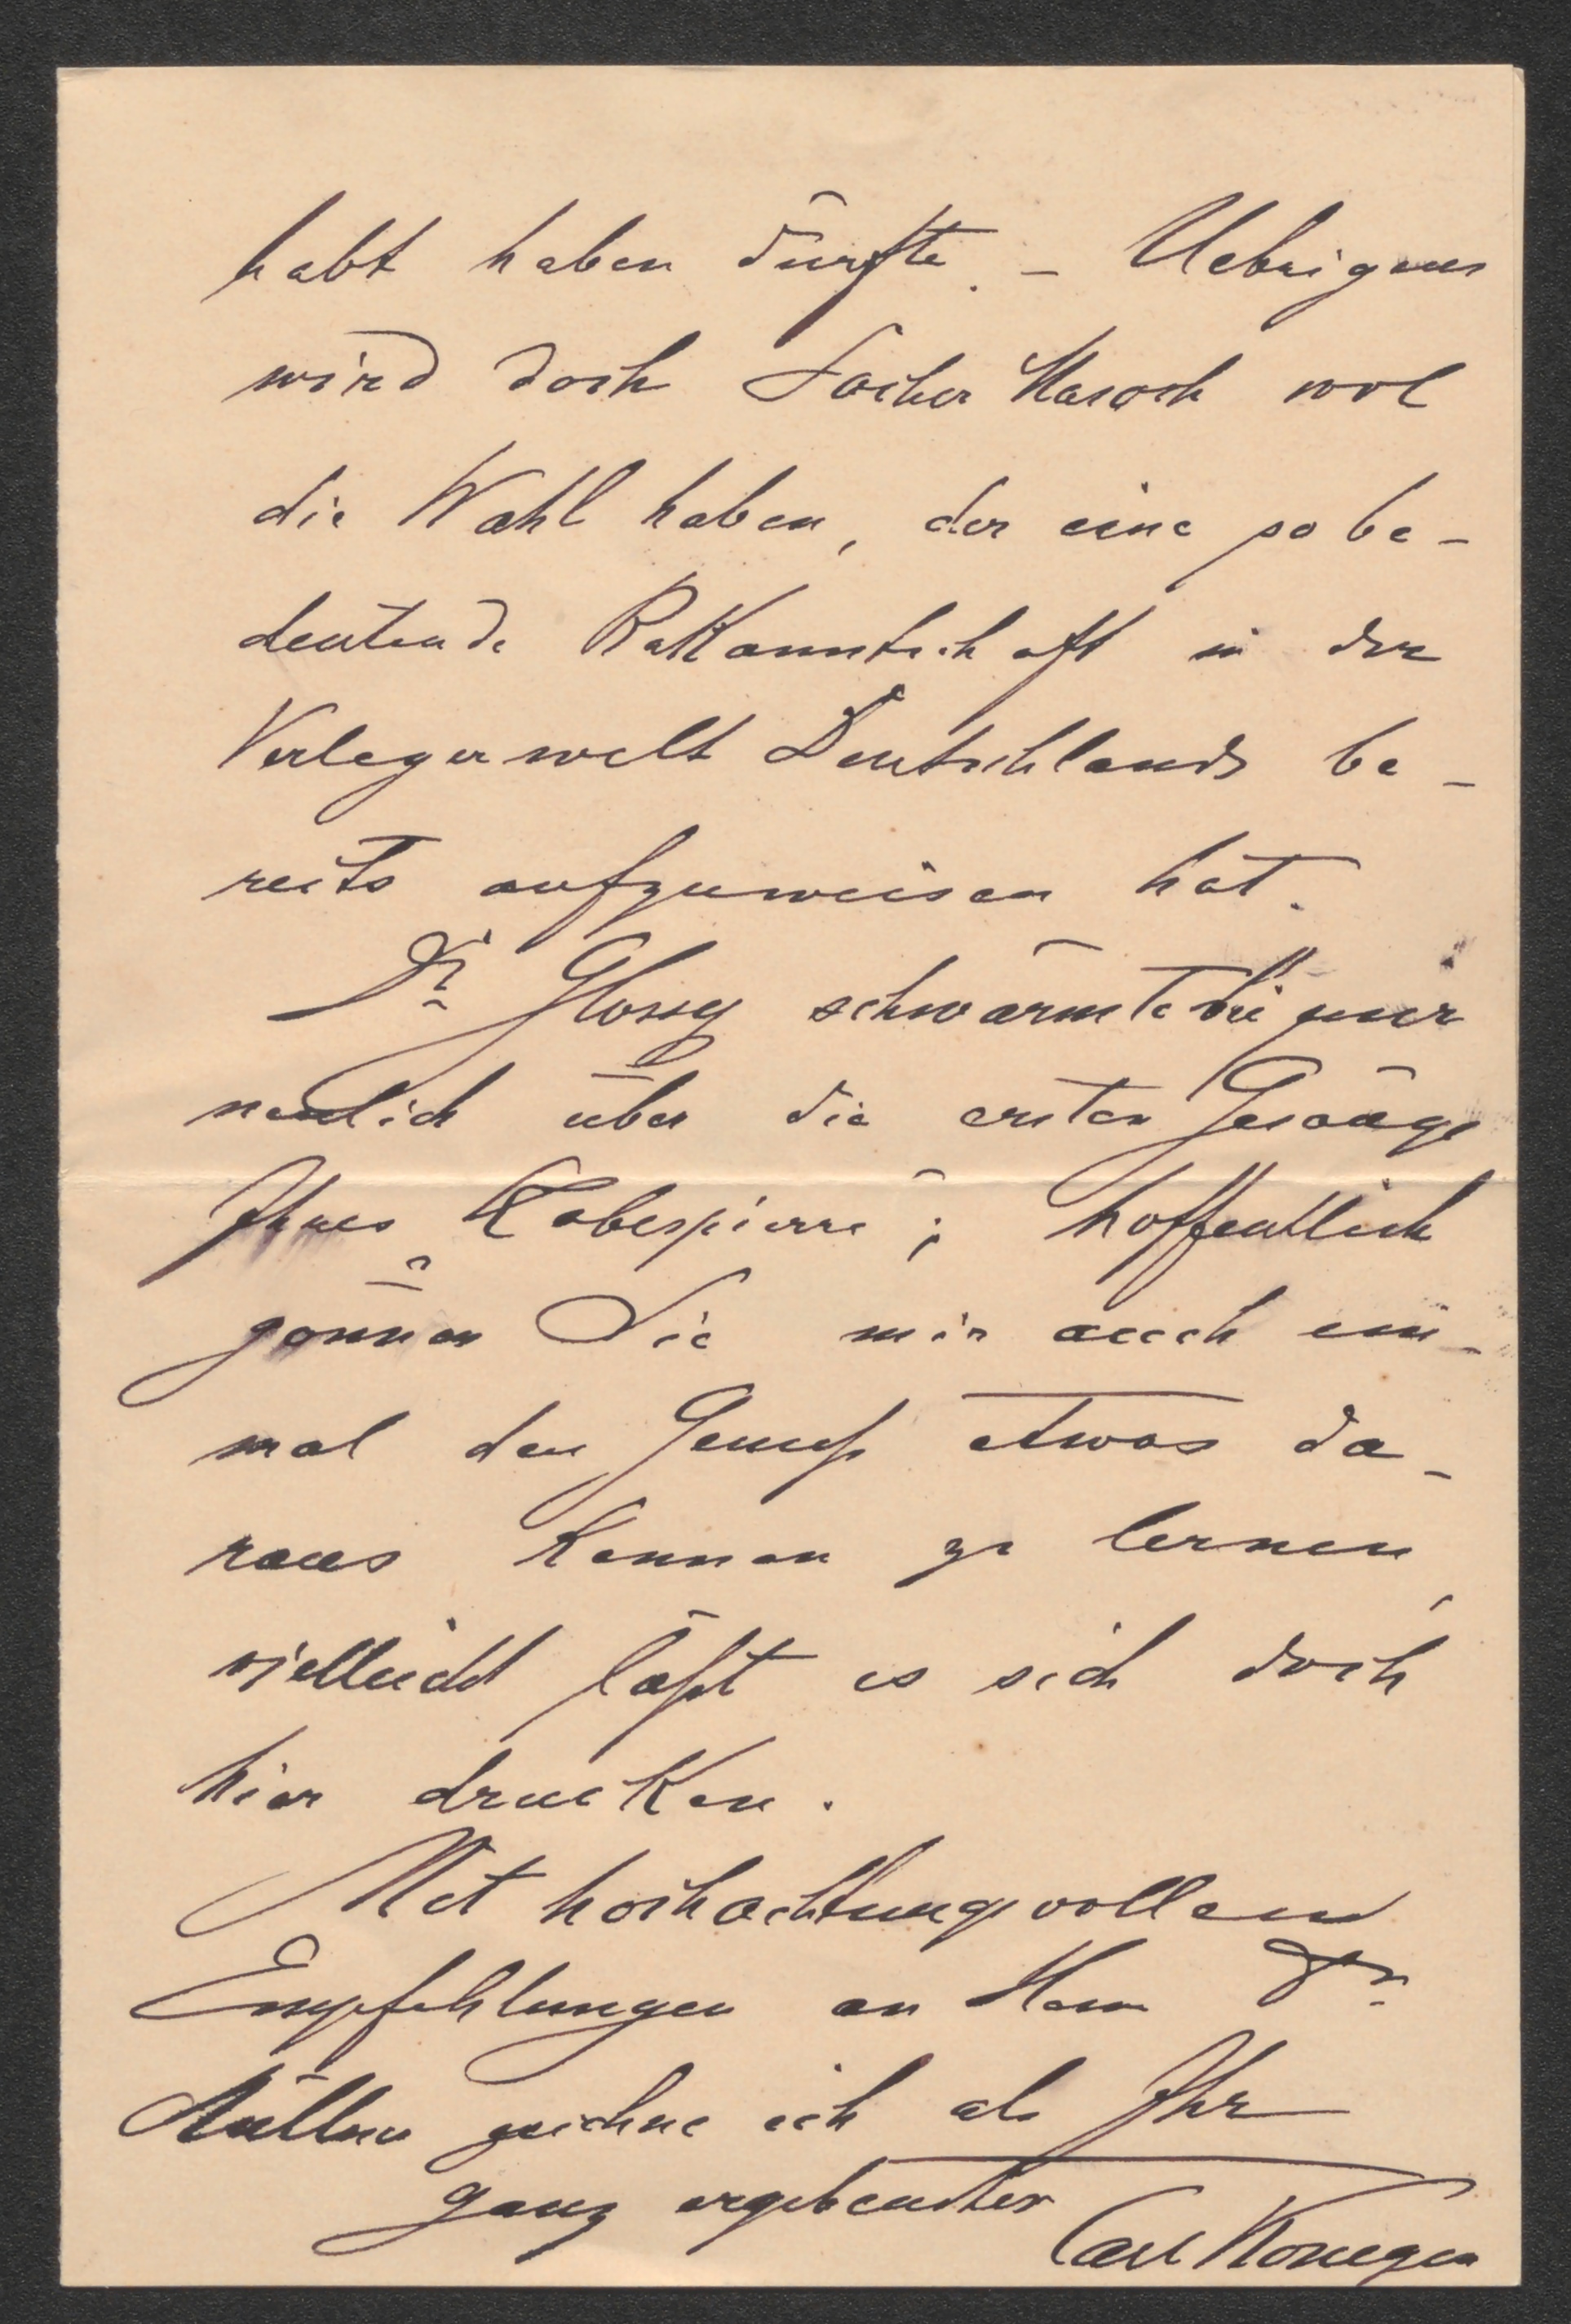 habt haben dürfte. – Uebrigens
wird doch Sacher Masoch wol
die Wahl haben, der eine so be-
deutende Bekanntschaft in der
Verlegerwelt Deutschlands be-
reits aufzuweisen hat.
Dr. Glossy schwärmte bei mir
neulich über die ersten Gesänge
Ihres „Robespierre“; hoffentlich
gönnen Sie mir auch ein-
mal den Genuß etwas da-
raus kennen zu lernen,
vielleicht läßt es sich doch
hier drucken.
Mit hochachtungsvollen
Empfehlungen an Herrn Dr.
Müllner zeichne ich als Ihr
ganz ergebenster
Carl Konegen